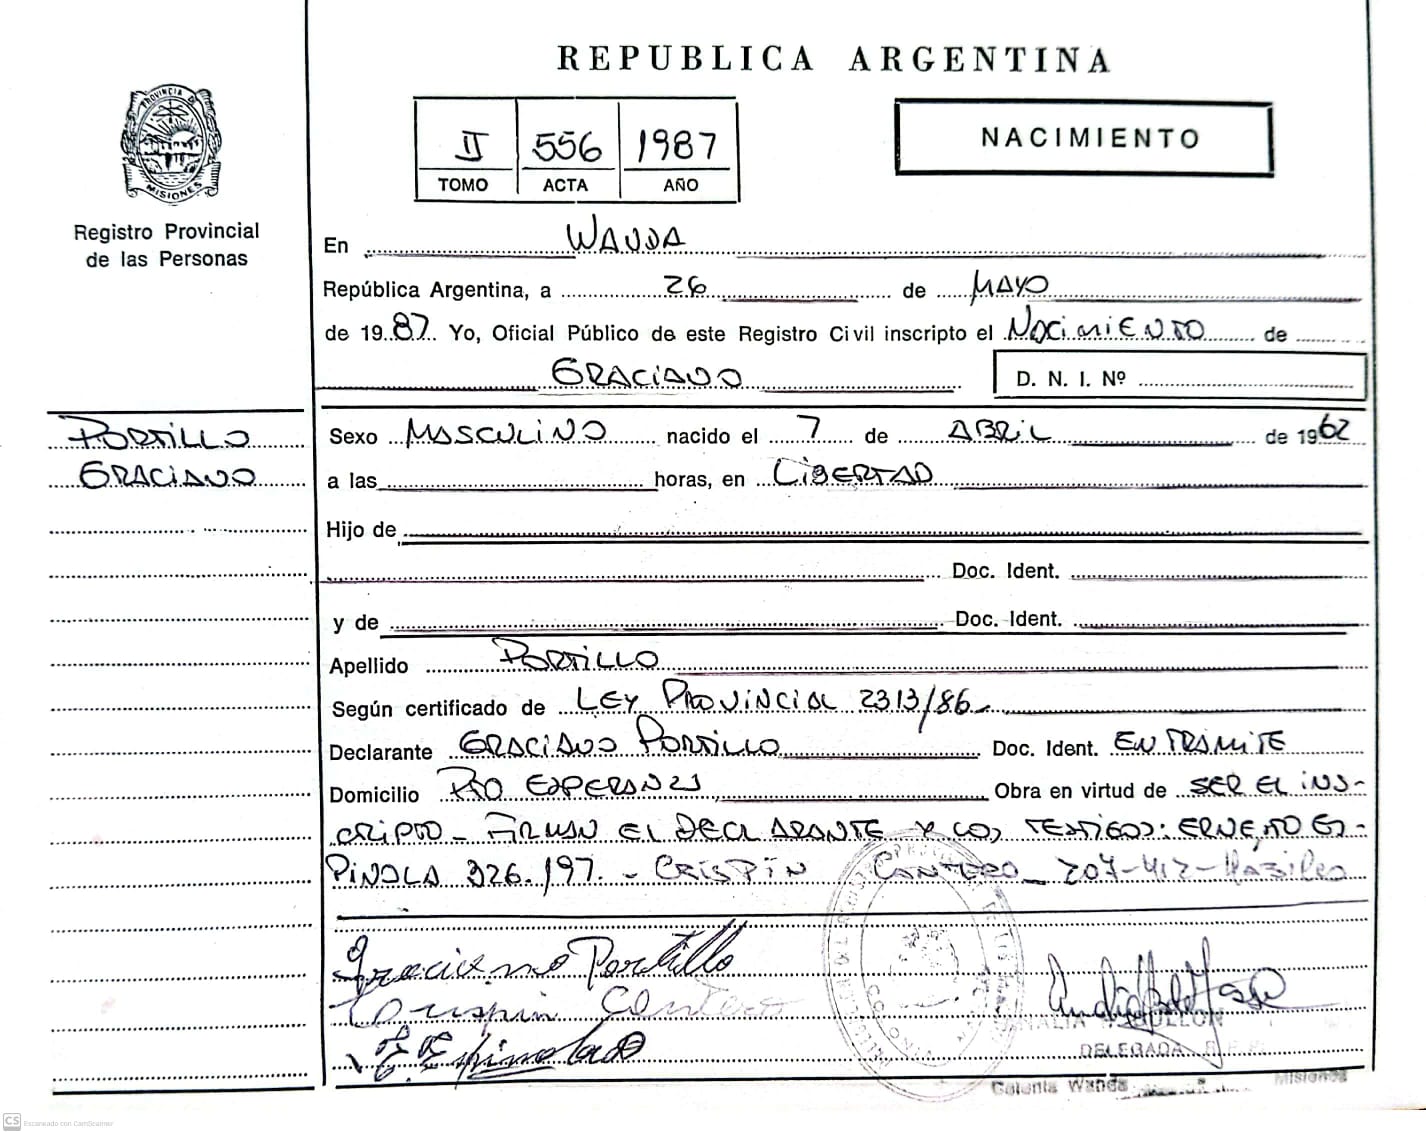 REPUBLICA ARGENTINA
PROVINCIA DE
MISIONES
Registro Provincial
de las Personas
II 556 1987
TOMO ACTA AÑO
NACIMIENTO
En WANDA
República Argentina, a 26 de MAYO
de 1987. Yo, Oficial Público de este Registro Civil inscripto el NACIMIENTO de
GRACIANO D. N. I. Nº
PORTILLO
GRACIANO
Sexo MASCULINO nacido el 7 de ABRIL de 1962
a las horas, en LIBERTAD
Hijo de
Doc. Ident.
y de Doc. Ident.
Apellido PORTILLO
Según certificado de LEY PROVINCIAL 2313/86-
Declarante GRACIANO PORTILLO Doc. Ident. EN TRAMITE
Domicilio PTO ESPERANZA Obra en virtud de SER EL INS-
CRIPTO - FIRMAN EL DECLARANTE Y LOS TESTIGOS: ERNESTO ES-
PINOLA 326.197. - CRISPÍN CANTERO - 207-412-
Graciano Portillo
Crispin Cantero
E. Espinola
DELEGADA
Colonia Wanda Misiones
CS Escaneado con CamScanner